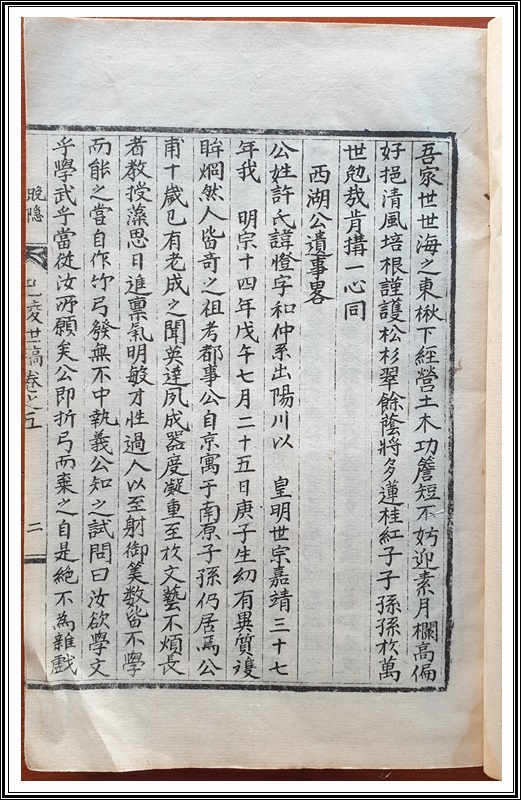 吾家世世海之東楸下經營土木功簷短不妨迎素月欄高偏
好挹清風培根謹護松杉翠餘蔭將多蓮桂紅子子孫孫於萬
世勉哉肯搆一心同
西湖公遺事畧
公姓許氏諱憕字和仲系出陽川以 皇明世宗嘉靖三十七
年我 明宗十四年戊午七月二十五日庚子生幼有異質複
眸烱然人皆奇之祖考都事公自京寓于南原子孫仍居焉公
甫十歲已有老成之聞英達夙成器度凝重至於文藝不煩長
者教授藻思日進禀氣明敏才性過人以至射御筭數皆不學
而能之嘗自作竹弓發無不中執義公知之試問曰汝欲學文
乎學武乎當從汝所願矣公即折弓而棄之自是絶不為雜戱
晩隱 世稿卷之五 二